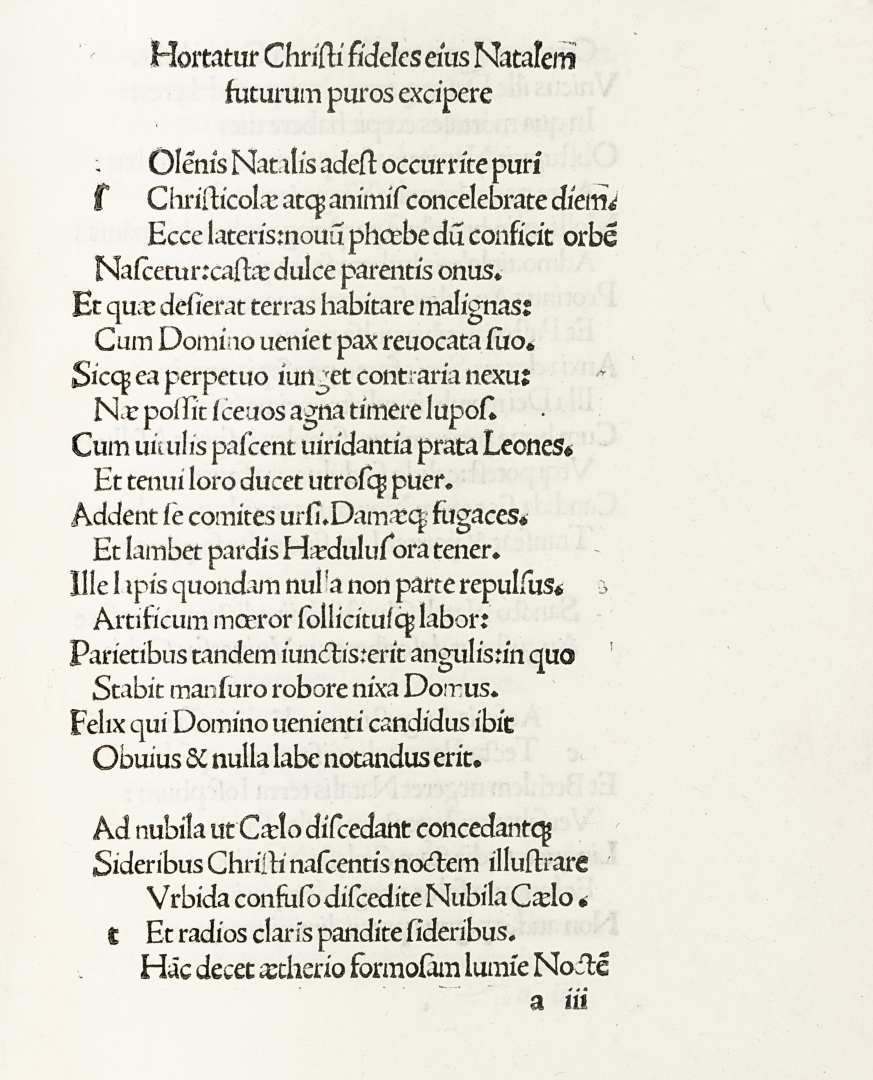 Hortatur Chriſti fideles eius Natalem
futurum puros excipere
Olẽnis Natalis adeſt occurrite puri
ſ Chriſticolæ atqꝫ animiſ concelebrate diem.
Ecce lateris:nouũ phœbe dũ conficit orbẽ
Naſcetur:caſtæ dulce parentis onus.
Et quæ deſierat terras habitare malignas:
Cum Domino ueniet pax reuocata ſuo.
Sicqꝫ ea perpetuo iunget contraria nexu:
Næ poſſit ſceuos agna timere lupoſ.
Cum uitulis paſcent uiridantia prata Leones.
Et tenui loro ducet utroſqꝫ puer.
Addent ſe comites urſi.Damæqꝫ fugaces.
Et lambet pardis Hæduluſ ora tener.
Ille lapis quondam nulla non parte repulſus.
Artificum mœror ſollicituſqꝫ labor:
Parietibus tandem iunctis:erit angulis:in quo
Stabit manſuro robore nixa Domus.
Felix qui Domino uenienti candidus ibit
Obuius & nulla labe notandus erit.
Ad nubila ut Cælo diſcedant concedantqꝫ
Sideribus Chriſti naſcentis noctem illuſtrare
Vrbida confuſo diſcedite Nubila Cælo.
t Et radios claris pandite ſideribus.
Hãc decet ætherio formoſam lumĩe Noctẽ
a iii